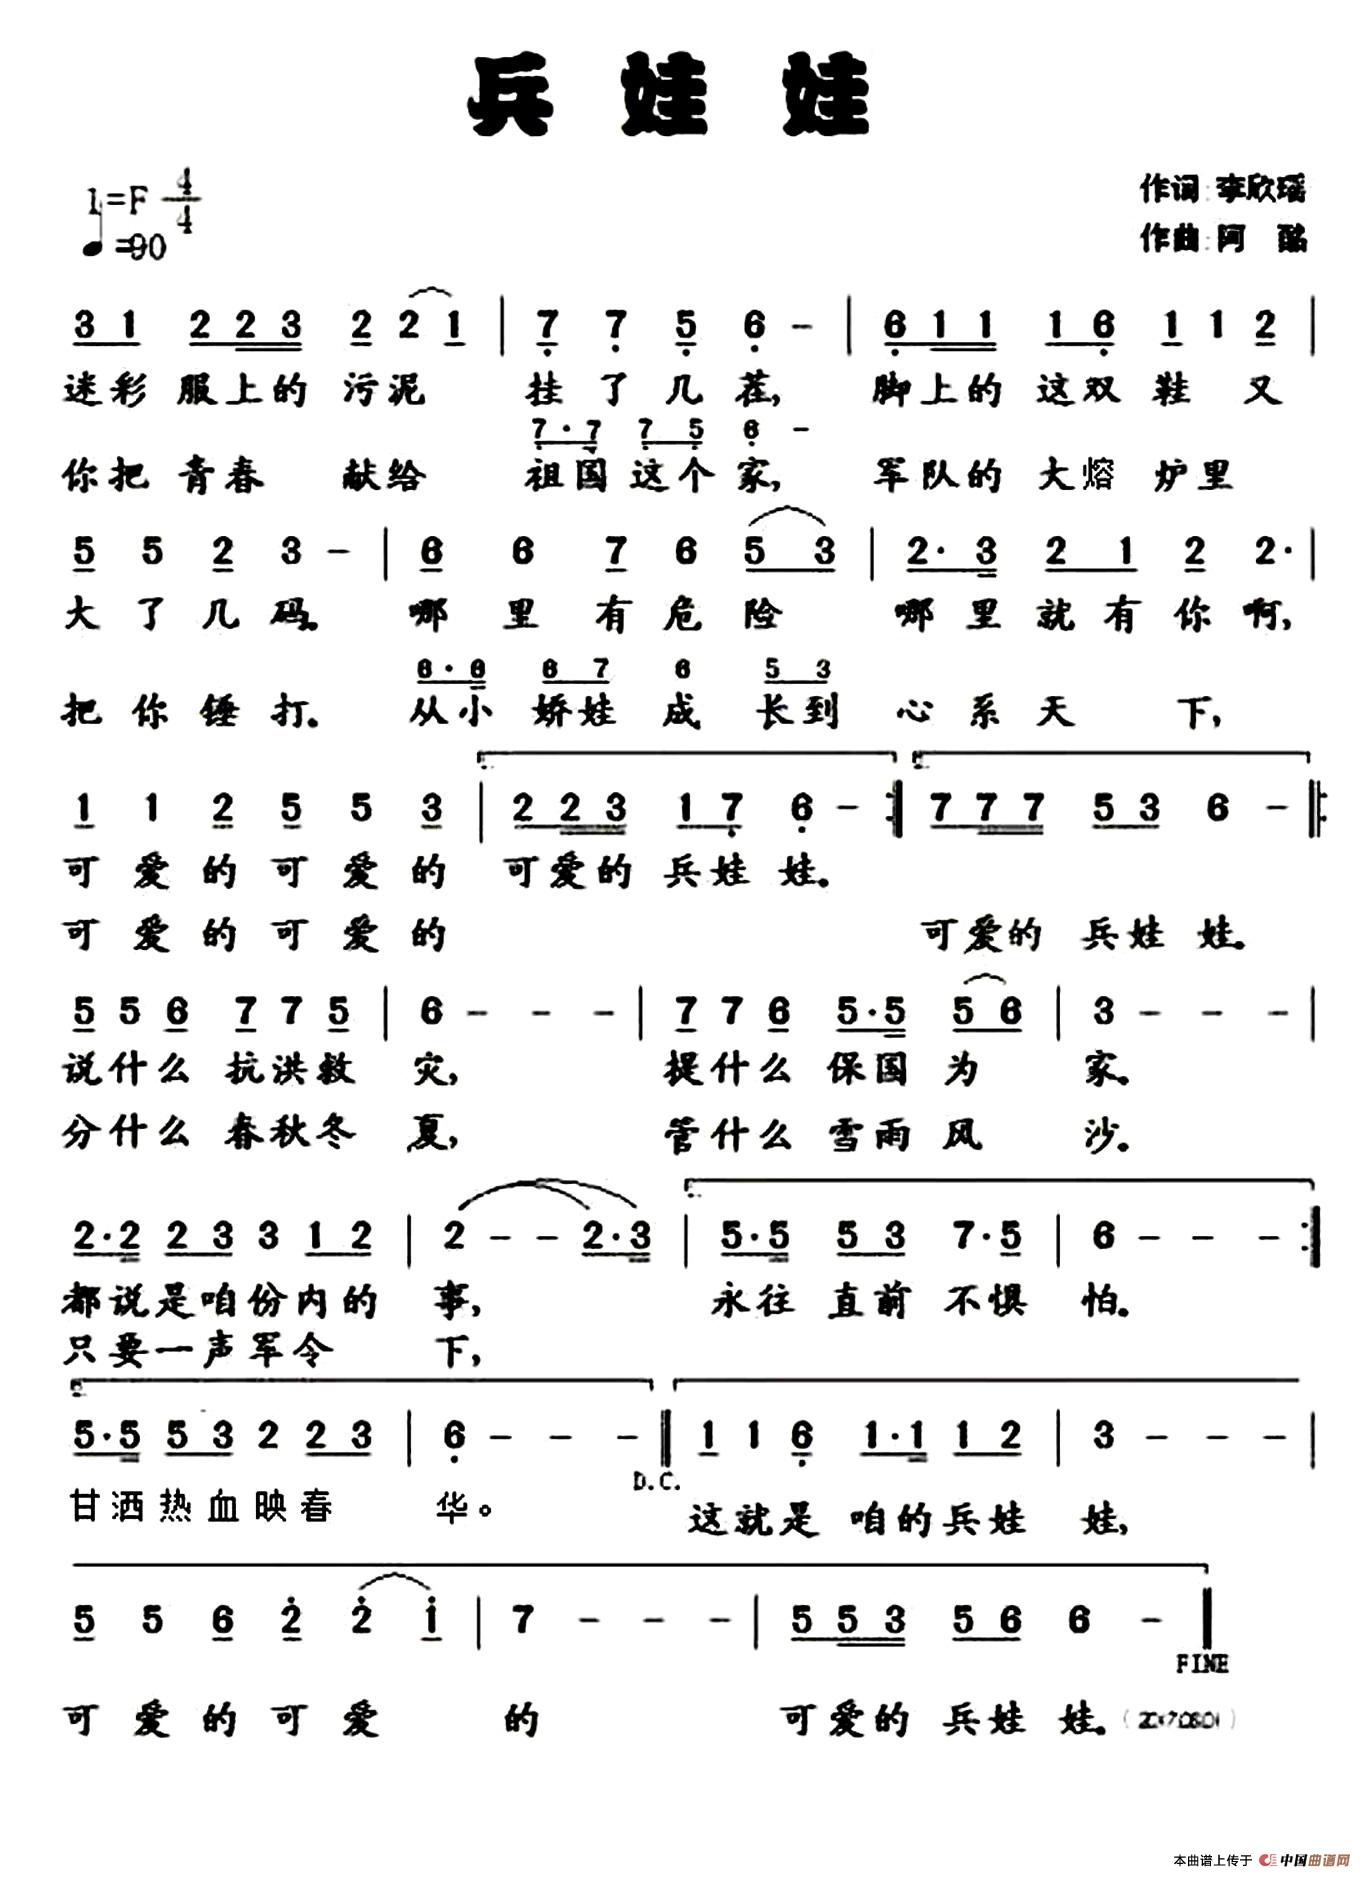 兵 娃 娃
1=F 4/4
作词:李欣瑶
♩=90
作曲:阿 酩
3 1 2 2 3 2 2 1 | 7 7 5 6 - | 6 1 1 1 6 1 1 2 |
迷彩 服上的 污泥 挂 了 几 茬, 脚上的 这双 鞋 又
7·7 7 5 6 -
你把 青春 献给 祖国 这个 家, 军队的 大熔 炉里
5 5 2 3 - | 6 6 7 6 5 3 | 2·3 2 1 2 2· |
大 了 几 码。 哪 里 有 危 险 哪 里 就 有 你 啊,
6·6 6 7 6 5 3
把 你 锤 打。 从小 娇娃 成 长到 心 系 天 下,
1 1 2 5 5 3 | 2 2 3 1 7 6 - :‖ 7 7 7 5 3 6 - ‖:
可 爱 的 可 爱 的 可爱的 兵娃 娃。
可 爱 的 可 爱 的 可爱的 兵娃 娃。
5 5 6 7 7 5 | 6 - - - | 7 7 6 5·5 5 6 | 3 - - - |
说什么 抗洪救 灾, 提什么 保国 为 家。
分什么 春秋冬 夏, 管什么 雪雨 风 沙。
2·2 2 3 3 1 2 | 2 - - 2·3 | 5·5 5 3 7·5 | 6 - - - :‖
都说是咱份内的 事, 永往 直前 不惧 怕。
只要一声军令 下,
5·5 5 3 2 2 3 | 6 - - - ‖ 1 1 6 1·1 1 2 | 3 - - - |
D.C.
甘洒热血映春 华。 这就是 咱的兵娃 娃,
5 5 6 2 2 1 | 7 - - - | 5 5 3 5 6 6 - ‖
FINE
可 爱 的 可 爱 的 可爱的 兵娃 娃。
本曲谱上传于 中国曲谱网